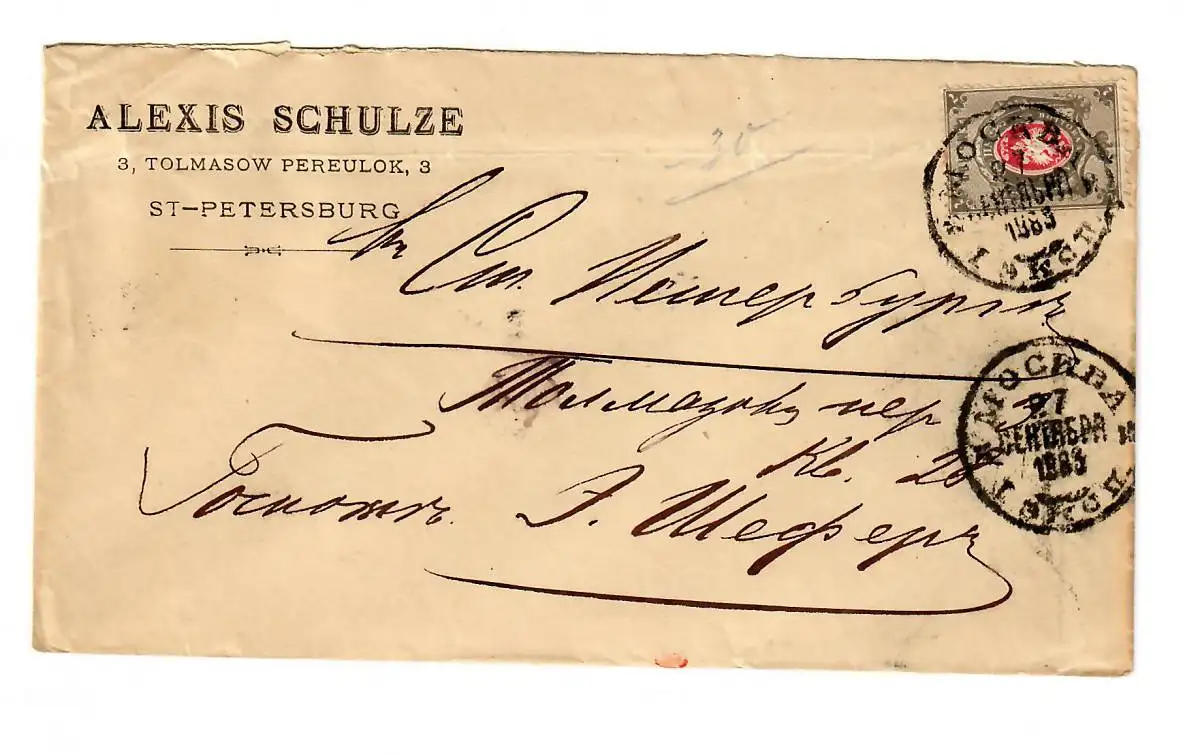 ALEXIS SCHULZE
3, TOLMASOW PEREULOK, 3
ST-PETERSBURG
30
Въ Ст. Петербургъ
Толмазовъ пер 3
Кв. 28
Госпожѣ Э. Шеферъ
МОСКВА
27
СЕНТЯБРЯ
1883
МОСКВА
27
СЕНТЯБРЯ
1883